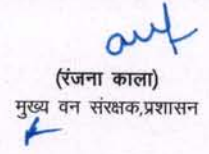 (रंजना काला)
मुख्य वन संरक्षक,प्रशासन